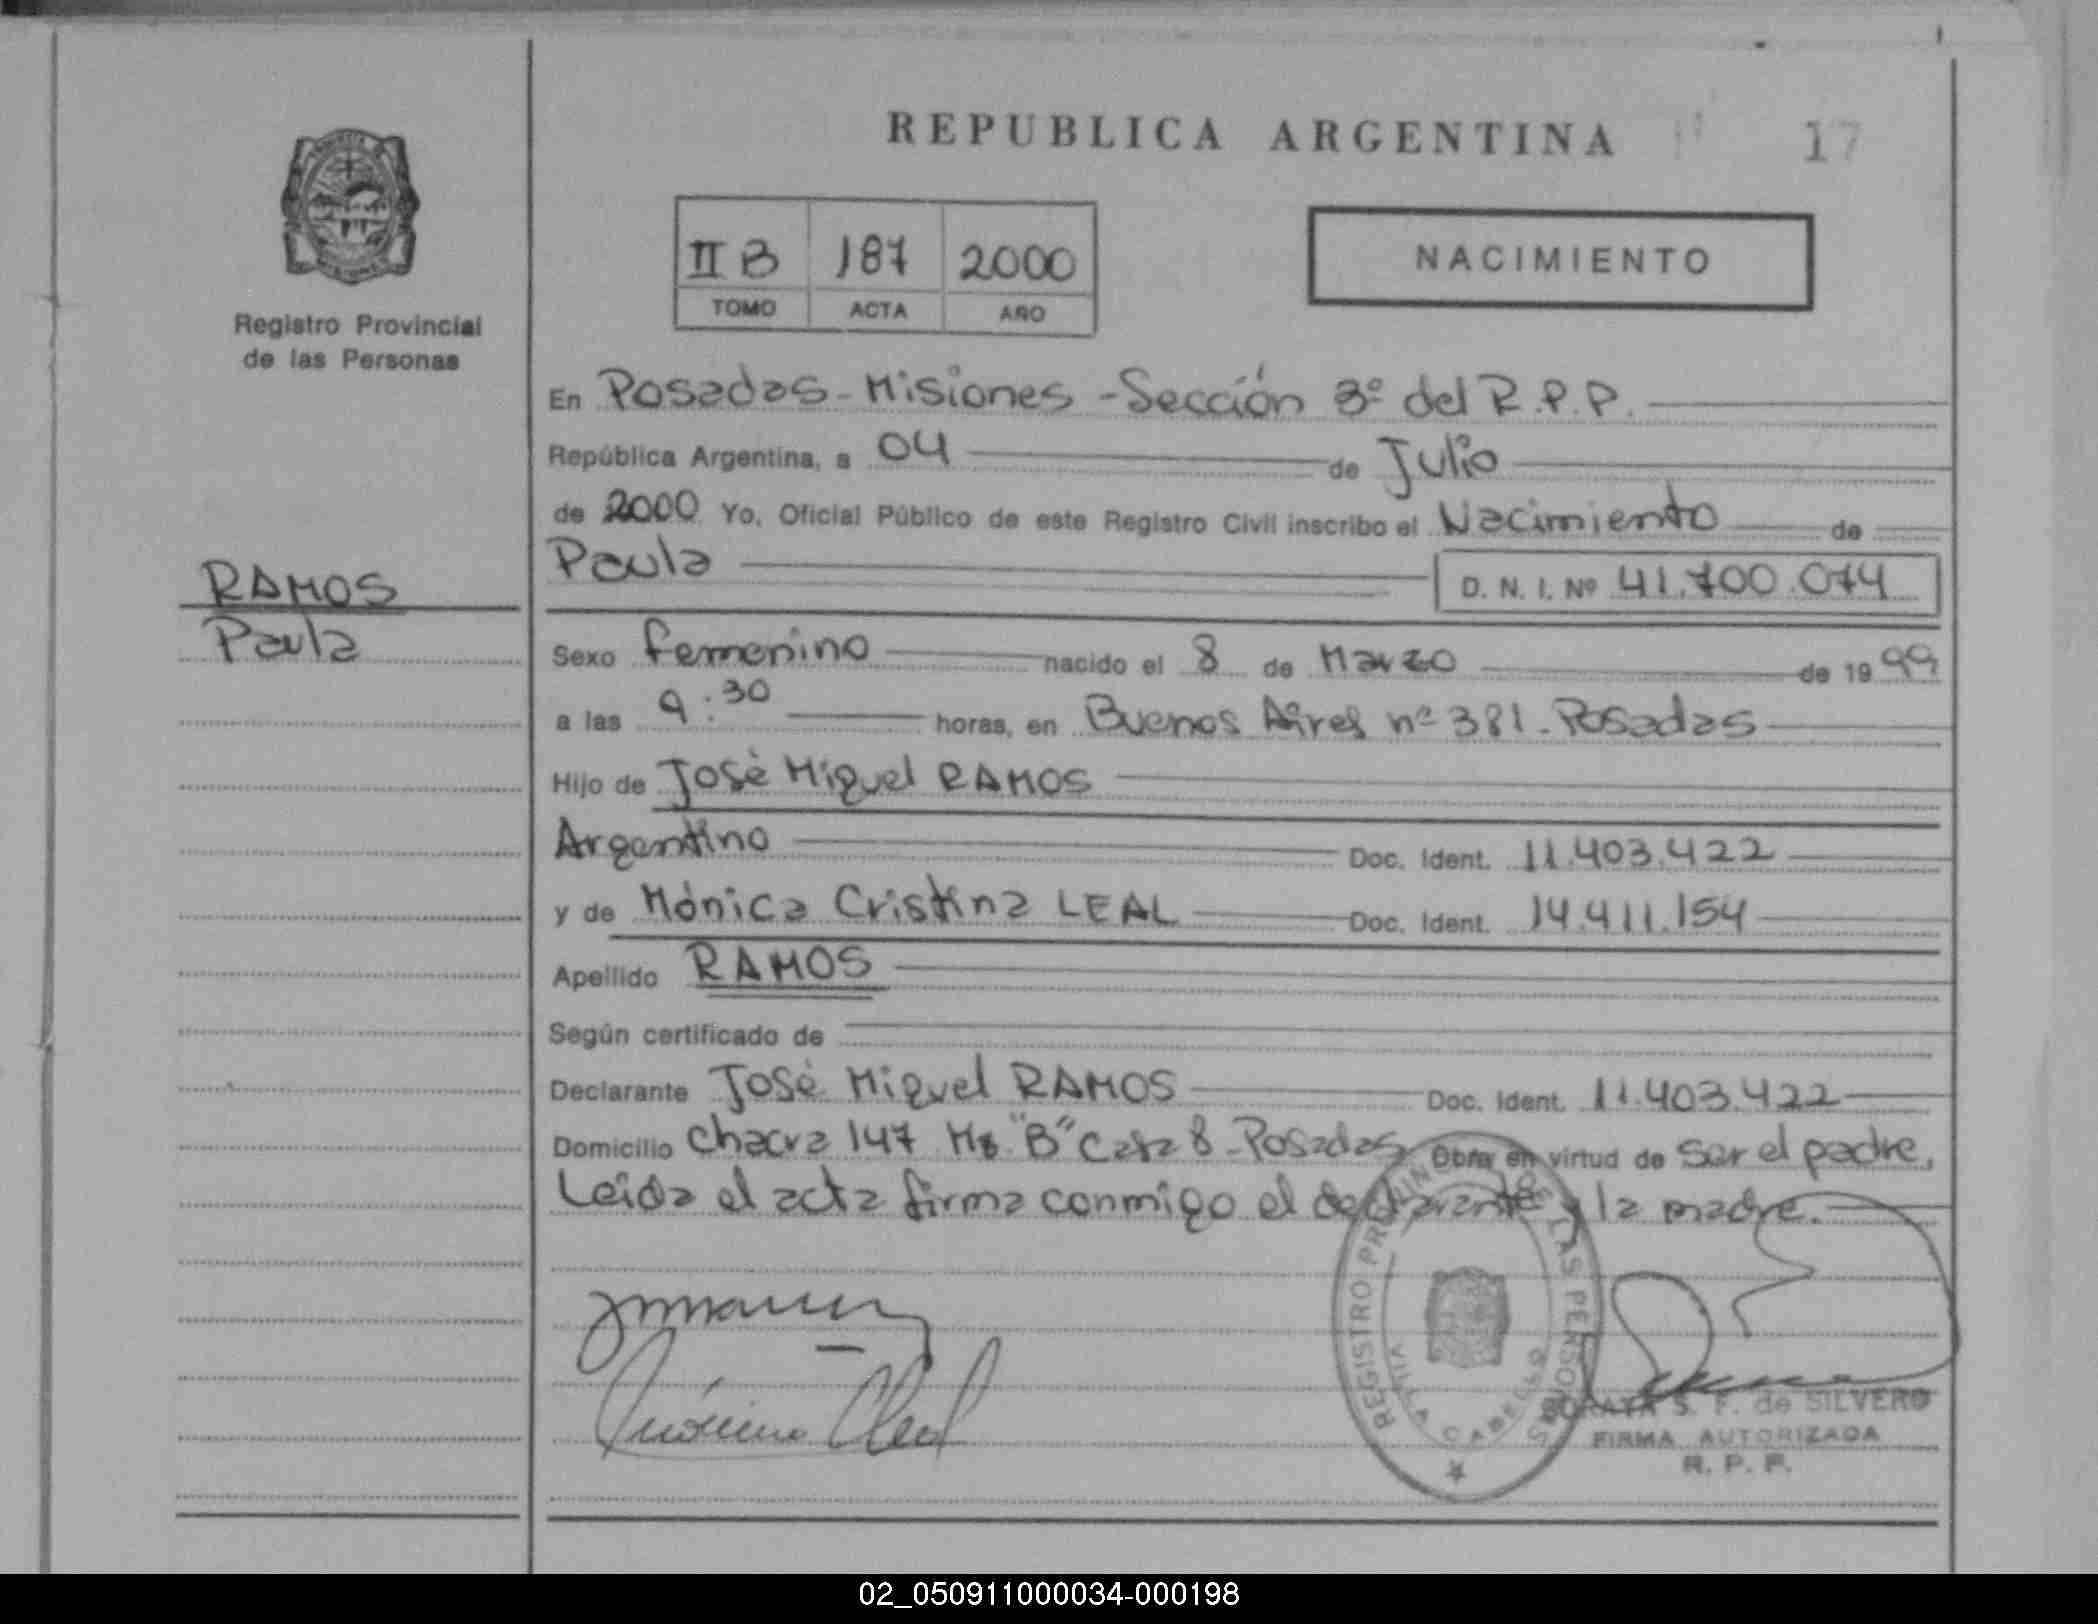 REPUBLICA ARGENTINA
17
II B 187 2000
TOMO ACTA AÑO
NACIMIENTO
Registro Provincial
de las Personas
En Posadas - Misiones - Sección 3º del R.P.P.
República Argentina, a 04 de Julio
de 2000 Yo, Oficial Público de este Registro Civil inscribo el Nacimiento de
Paula D. N. I. Nº 41.700.074
RAMOS
Paula
Sexo femenino nacido el 8 de Marzo de 1999
a las 9:30 horas, en Buenos Aires nº 381 - Posadas
Hijo de José Miguel RAMOS
Argentino Doc. Ident. 11.403.422
y de Mónica Cristina LEAL Doc. Ident. 14.411.154
Apellido RAMOS
Según certificado de
Declarante José Miguel RAMOS Doc. Ident. 11.403.422
Domicilio Chacra 147 Mz "B" Casa 8 - Posadas Obra en virtud de ser el padre,
Leída el acta firma conmigo el declarante y la madre.
REGISTRO PROVINCIAL DE LAS PERSONAS
VILLA CABELLO
SORAYA S. F. de SILVERO
FIRMA AUTORIZADA
R. P. P.
02_050911000034-000198